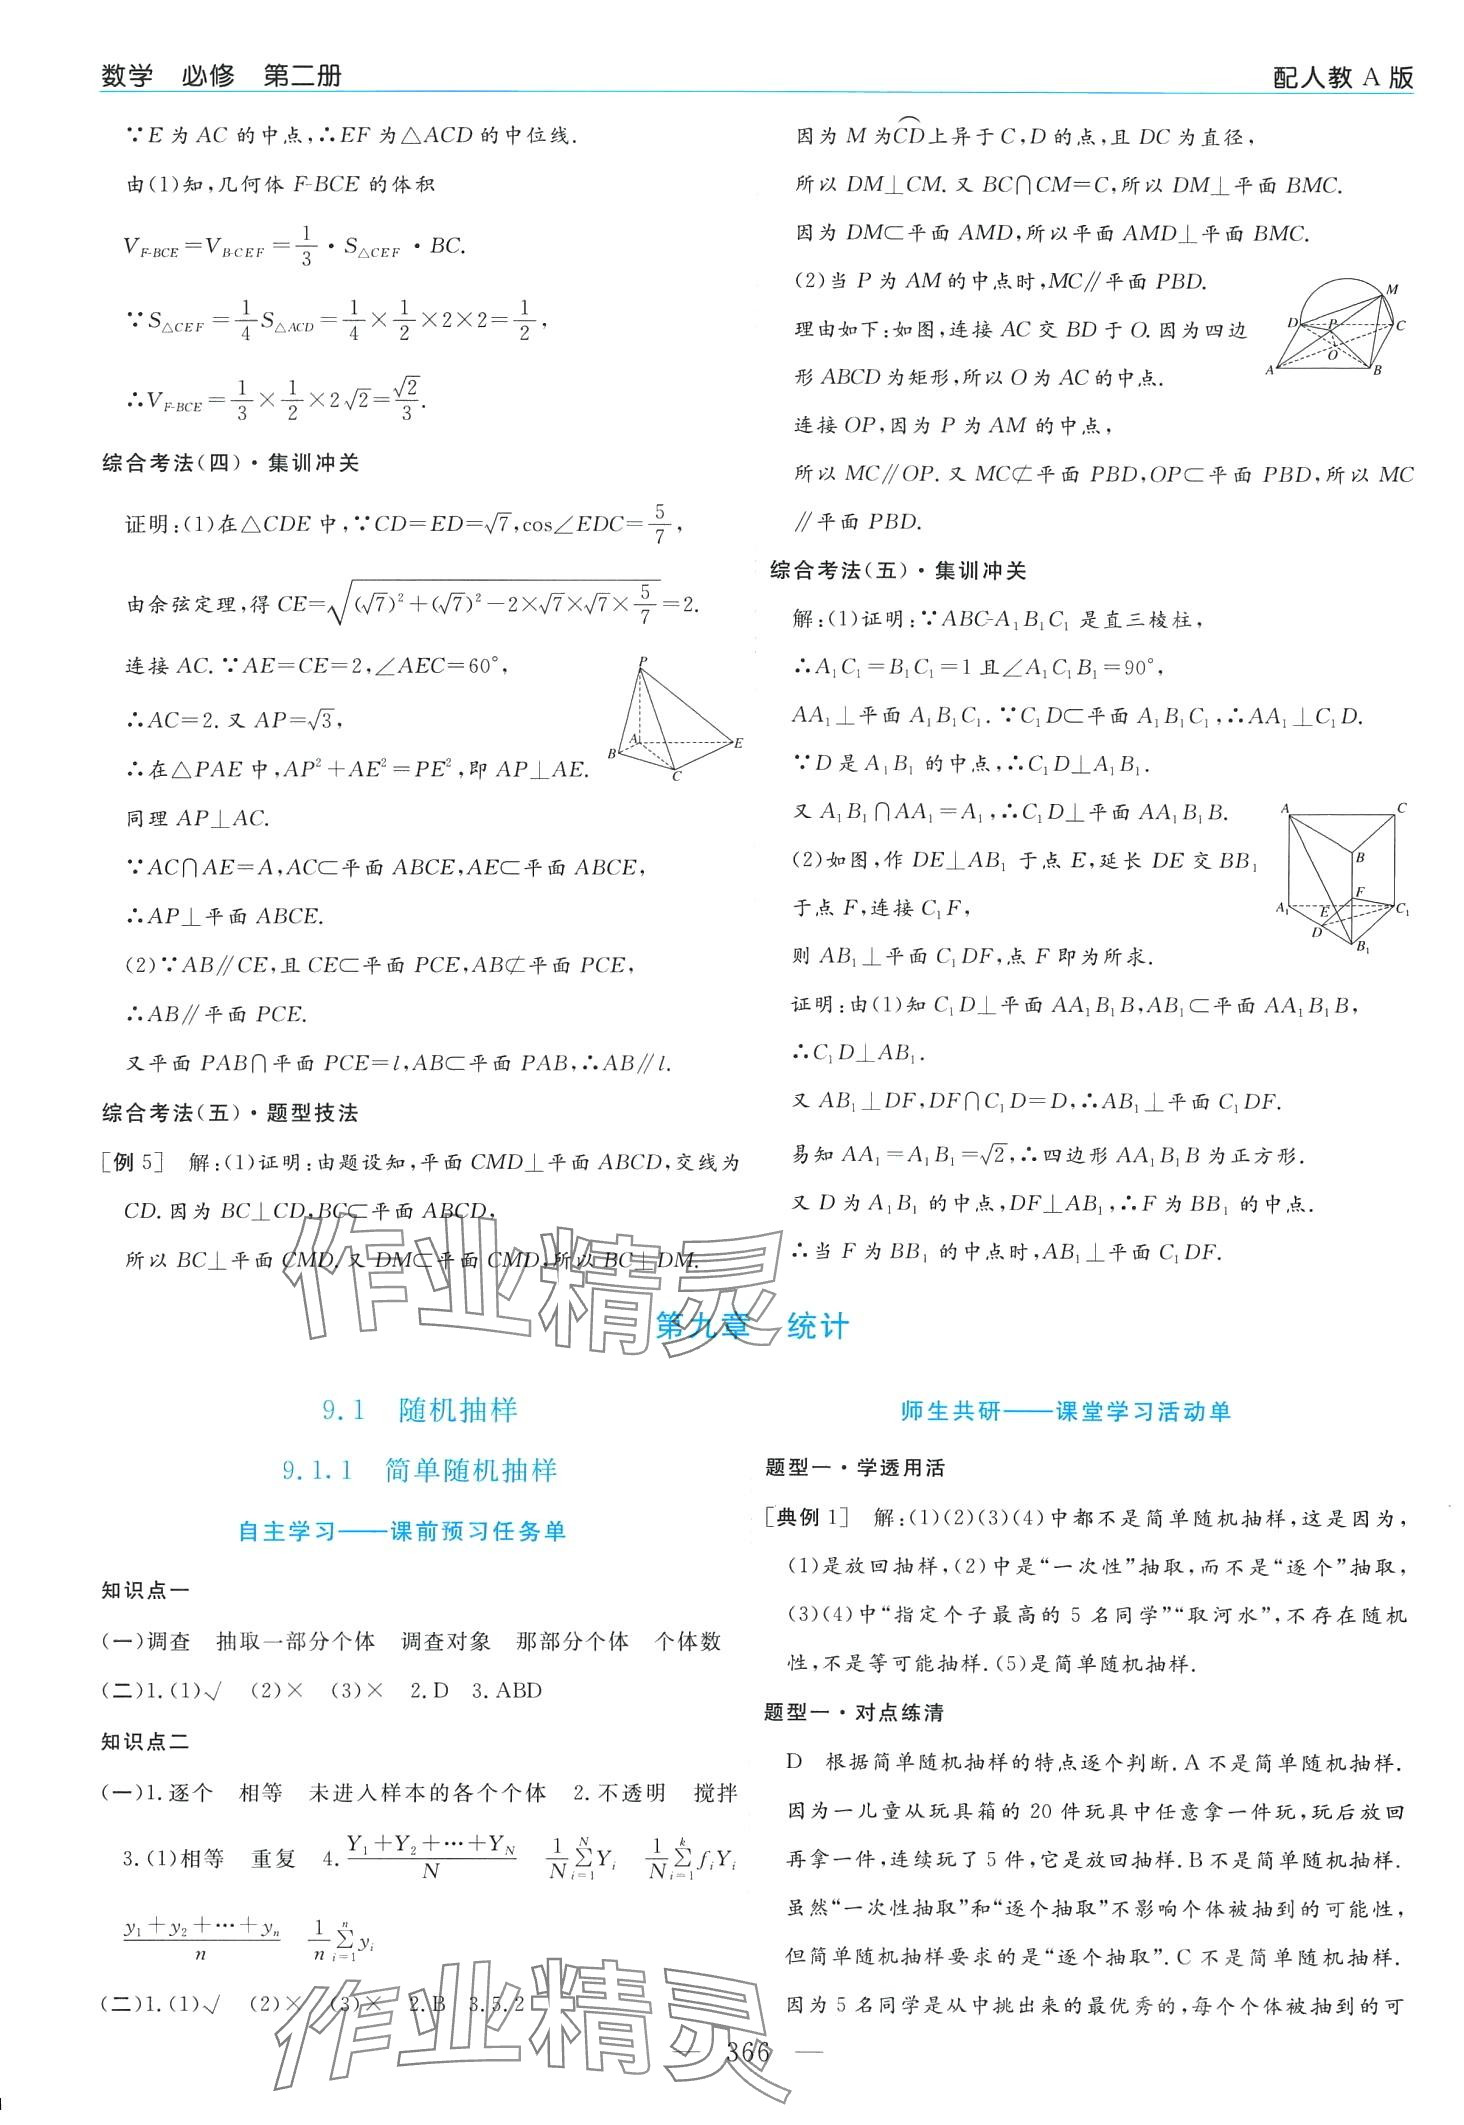 数学　必修　第二册
配人教 A 版
∵E 为 AC 的中点,∴EF 为△ACD 的中位线.
由(1)知,几何体 F-BCE 的体积
V_{F-BCE}=V_{B-CEF}=1/3·S_{△CEF}·BC.
∵S_{△CEF}=1/4 S_{△ACD}=1/4×1/2×2×2=1/2,
∴V_{F-BCE}=1/3×1/2×2√2=√2/3.
综合考法(四)·集训冲关
证明:(1)在△CDE 中,∵CD=ED=√7,cos∠EDC=5/7,
由余弦定理,得 CE=√((√7)²+(√7)²-2×√7×√7×5/7)=2.
连接 AC.∵AE=CE=2,∠AEC=60°,
∴AC=2.又 AP=√3,
∴在△PAE 中,AP²+AE²=PE²,即 AP⊥AE.
同理 AP⊥AC.
∵AC∩AE=A,AC⊂平面 ABCE,AE⊂平面 ABCE,
∴AP⊥平面 ABCE.
(2)∵AB∥CE,且 CE⊂平面 PCE,AB⊄平面 PCE,
∴AB∥平面 PCE.
又平面 PAB∩平面 PCE=l,AB⊂平面 PAB,∴AB∥l.
P
A
B
C
E
综合考法(五)·题型技法
[例 5]　解:(1)证明:由题设知,平面 CMD⊥平面 ABCD,交线为
CD.因为 BC⊥CD,BC⊂平面 ABCD,
所以 BC⊥平面 CMD.又 DM⊂平面 CMD,所以 BC⊥DM.
因为 M 为⌒CD上异于 C,D 的点,且 DC 为直径,
所以 DM⊥CM.又 BC∩CM=C,所以 DM⊥平面 BMC.
因为 DM⊂平面 AMD,所以平面 AMD⊥平面 BMC.
(2)当 P 为 AM 的中点时,MC∥平面 PBD.
理由如下:如图,连接 AC 交 BD 于 O.因为四边
形 ABCD 为矩形,所以 O 为 AC 的中点.
连接 OP,因为 P 为 AM 的中点,
所以 MC∥OP.又 MC⊄平面 PBD,OP⊂平面 PBD,所以 MC
∥平面 PBD.
M
D
P
C
O
A
B
综合考法(五)·集训冲关
解:(1)证明:∵ABC-A₁B₁C₁ 是直三棱柱,
∴A₁C₁=B₁C₁=1 且∠A₁C₁B₁=90°,
AA₁⊥平面 A₁B₁C₁.∵C₁D⊂平面 A₁B₁C₁,∴AA₁⊥C₁D.
∵D 是 A₁B₁ 的中点,∴C₁D⊥A₁B₁.
又 A₁B₁∩AA₁=A₁,∴C₁D⊥平面 AA₁B₁B.
(2)如图,作 DE⊥AB₁ 于点 E,延长 DE 交 BB₁
于点 F,连接 C₁F,
则 AB₁⊥平面 C₁DF,点 F 即为所求.
证明:由(1)知 C₁D⊥平面 AA₁B₁B,AB₁⊂平面 AA₁B₁B,
∴C₁D⊥AB₁.
又 AB₁⊥DF,DF∩C₁D=D,∴AB₁⊥平面 C₁DF.
易知 AA₁=A₁B₁=√2,∴四边形 AA₁B₁B 为正方形.
又 D 为 A₁B₁ 的中点,DF⊥AB₁,∴F 为 BB₁ 的中点.
∴当 F 为 BB₁ 的中点时,AB₁⊥平面 C₁DF.
A
C
B
F
A₁
E
C₁
D
B₁
作业精灵
第九章　统计
9.1　随机抽样
9.1.1　简单随机抽样
自主学习——课前预习任务单
知识点一
(一)调查　抽取一部分个体　调查对象　那部分个体　个体数
(二)1.(1)√　(2)×　(3)×　2.D　3.ABD
知识点二
(一)1.逐个　相等　未进入样本的各个个体　2.不透明　搅拌
3.(1)相等　重复　4.(Y₁+Y₂+⋯+Y_N)/N　1/N ∑_{i=1}^{N} Y_i　1/N ∑_{i=1}^{k} f_iY_i
(y₁+y₂+⋯+y_n)/n　1/n ∑_{i=1}^{n} y_i
(二)1.(1)√　(2)×　(3)×　2.B　3.5.2
师生共研——课堂学习活动单
题型一·学透用活
[典例 1]　解:(1)(2)(3)(4)中都不是简单随机抽样,这是因为,
(1)是放回抽样,(2)中是“一次性”抽取,而不是“逐个”抽取,
(3)(4)中“指定个子最高的 5 名同学”“取河水”,不存在随机
性,不是等可能抽样.(5)是简单随机抽样.
题型一·对点练清
D　根据简单随机抽样的特点逐个判断.A 不是简单随机抽样.
因为一儿童从玩具箱的 20 件玩具中任意拿一件玩,玩后放回
再拿一件,连续玩了 5 件,它是放回抽样.B 不是简单随机抽样.
虽然“一次性抽取”和“逐个抽取”不影响个体被抽到的可能性,
但简单随机抽样要求的是“逐个抽取”.C 不是简单随机抽样.
因为 5 名同学是从中挑出来的最优秀的,每个个体被抽到的可
作业精灵
— 366 —